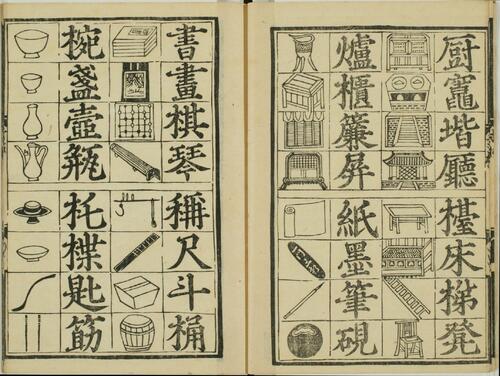 厨竈堦廳
檯床梯凳
爐櫃簾屏
紙墨筆硯
書畫棋琴
稱尺斗桶
椀盞壺瓶
杔楪匙筯